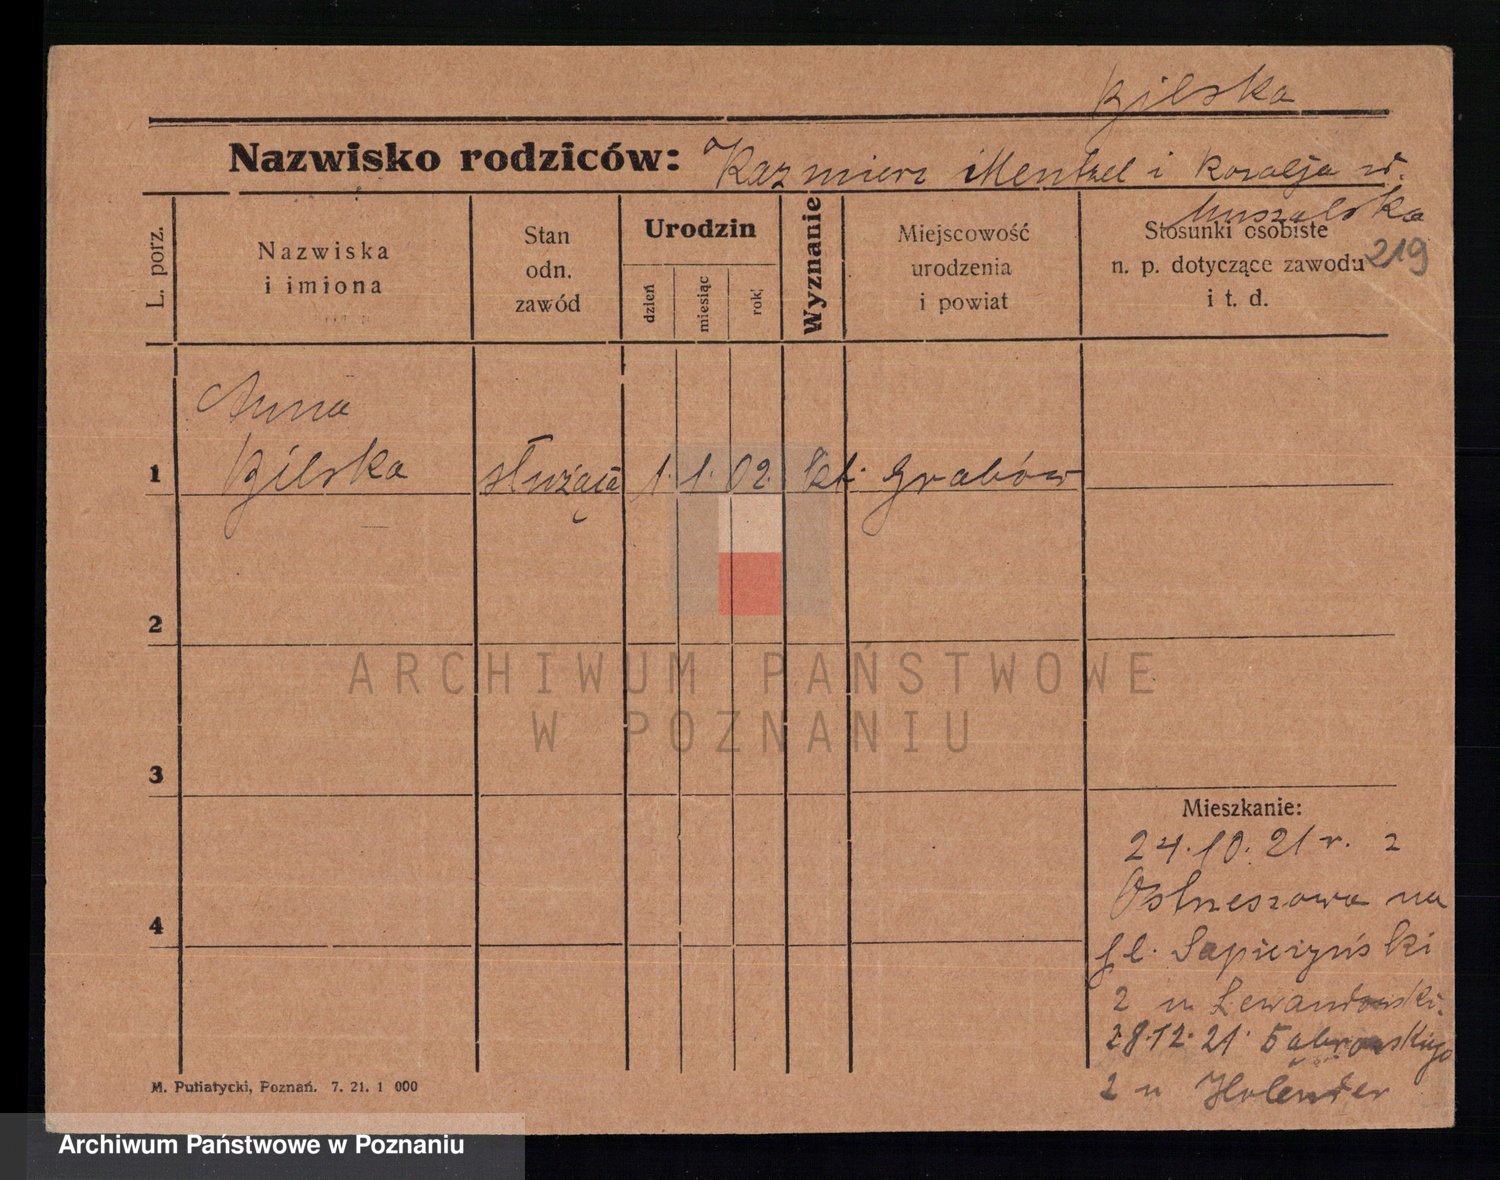 Bilska
Nazwisko rodziców: Kazmierz Mentzel i Rozalja zd.
Muszalska
219
L. porz.
Nazwiska
i imiona
Stan
odn.
zawód
Urodzin
dzień
miesiąc
rok
Wyznanie
Miejscowość
urodzenia
i powiat
Stosunki osobiste
n. p. dotyczące zawodu
i t. d.
Anna
1 Bilska służąca 1. 1. 02. kt. Grabów
2
3
4
ARCHIWUM PAŃSTWOWE
W POZNANIU
Mieszkanie:
24.10.21 r. z
Ostrzeszowa na
pl. Sapieżyński
2 u Lewandowski.
28.12.21 Dąbrowskiego
2 u Holender
M. Putiatycki, Poznań. 7. 21. 1 000
Archiwum Państwowe w Poznaniu